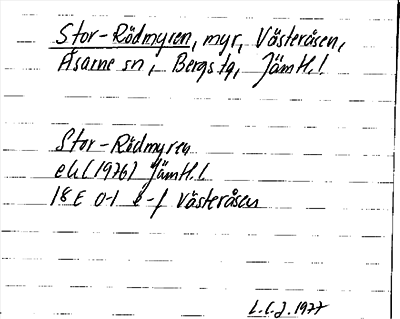 Stor-Rödmyren, myr, Västeråsen,
Åsarne sn, Bergs tg, Jämtl.l
Stor-Rödmyren
ek (1976) Jämtl.l
18E 0-1 e-f Västeråsen
L.C.J. 1977